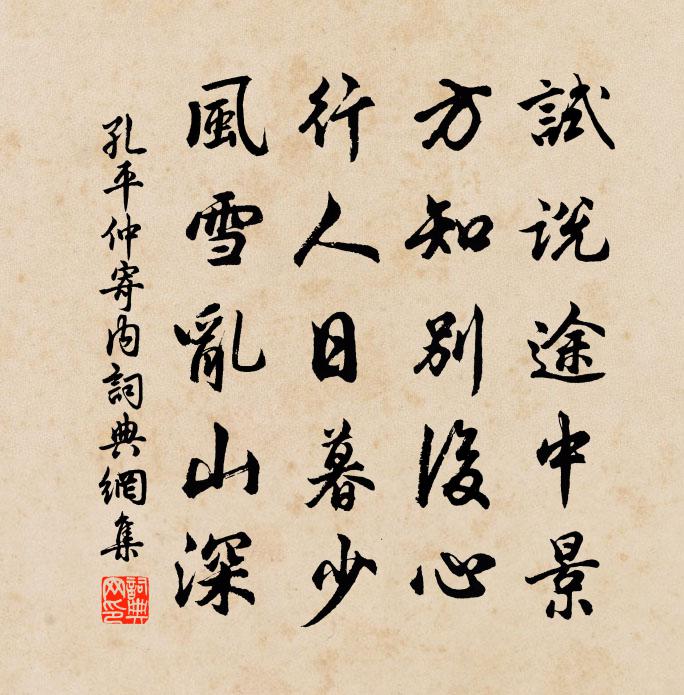 試說途中景
方知別後心
行人日暮少
風雪亂山深
孔平仲寄內詞典網集
詞典
網印